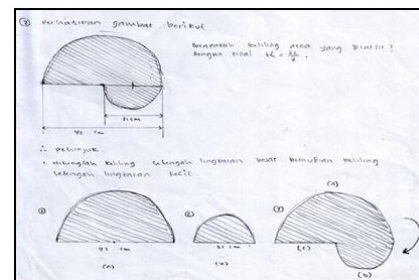 ② Perhatikan gambar berikut
Berapakah keliling area yang diarsir?
dengan nilai
21 cm
42 cm
∴ Petunjuk
Hitunglah keliling setengah lingkaran besar kemudian keliling
setengah lingkaran kecil.
①
②
③
(a)
42 cm
21 cm
(c)
(a)
(b)
(b)